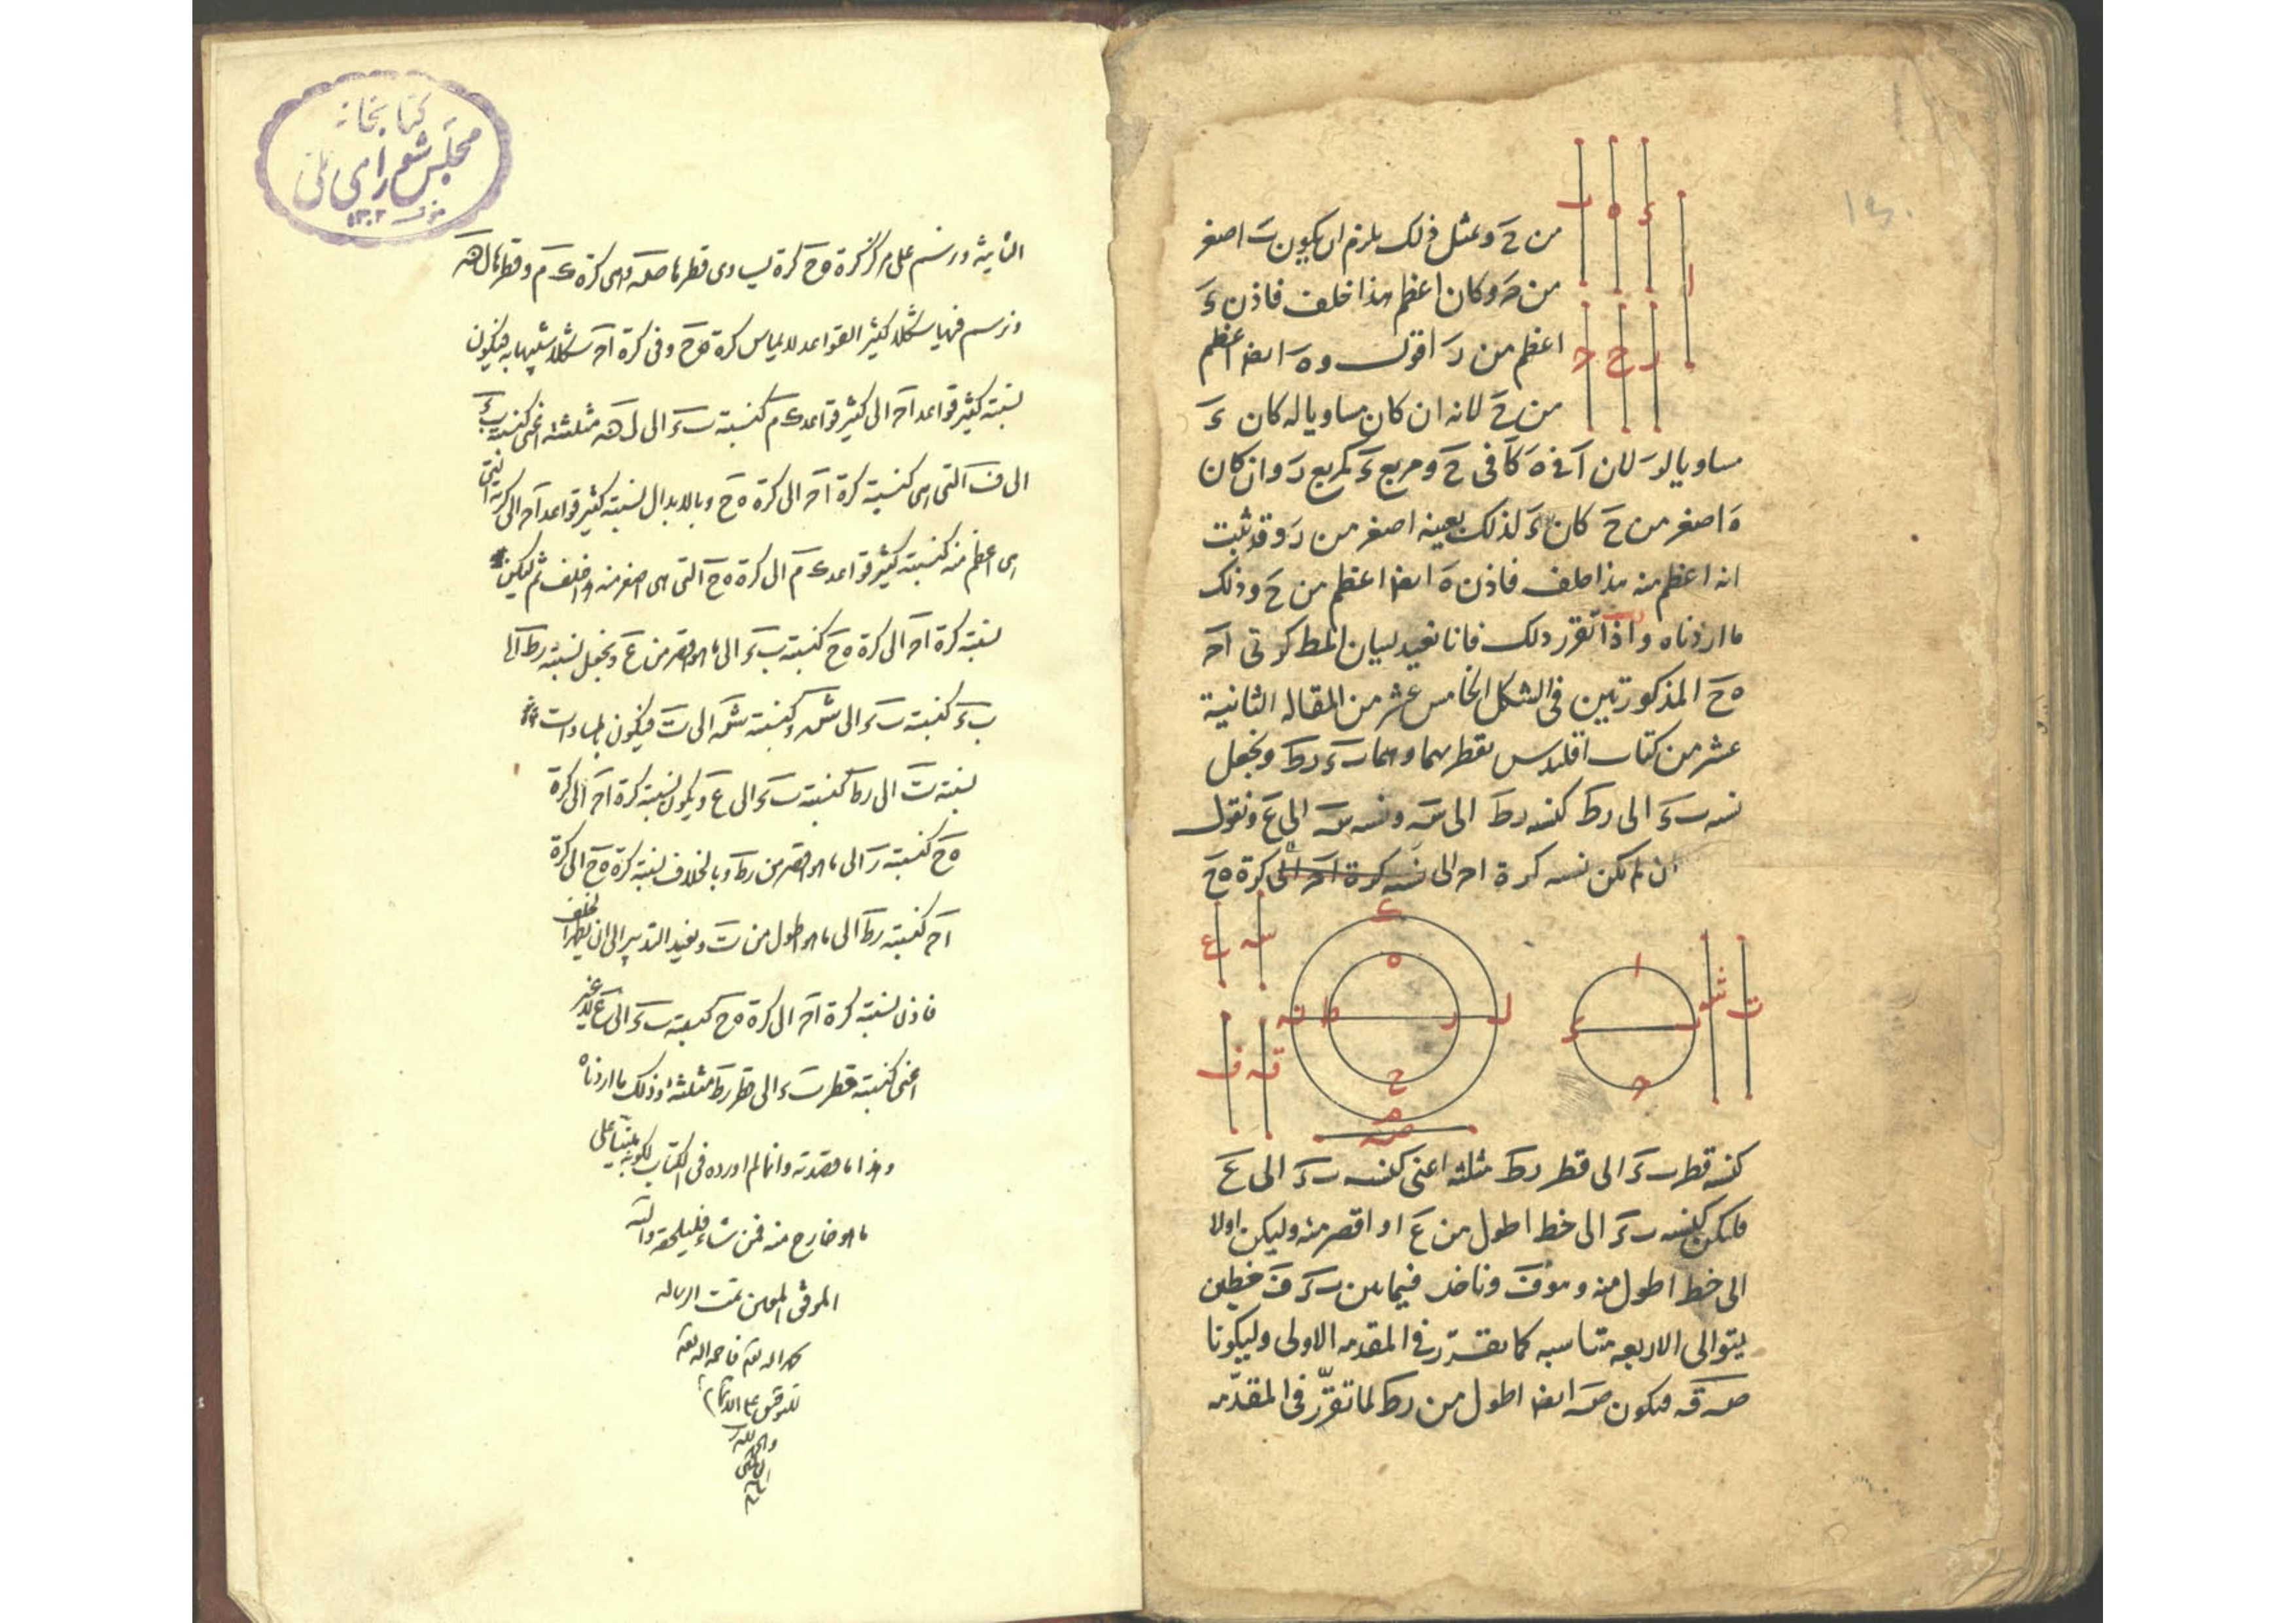 من حَ وبمثل ذلك يلزم ان يكون بَ اصغر
من جَ وكان اعظم هذا خلف فاذن ءَ
اعظم من رَ اقول وهَ ايضا اعظم
من حَ لانه ان كان مساويا له كان ءَ
مساويا لرَ لان آ في هَ كآ في حَ ومربع ءَ كمربع رَ وان كان
هَ اصغر من حَ كان ءَ لذلك بعينه اصغر من رَ وقد ثبت
انه اعظم منه هذا خلف فاذن هَ ايضا اعظم من حَ وذلك
ما اردناه واذا تقرر ذلك فانا نعيد لبيان المط كرتى اجَ
هحَ المذكورتين فى الشكل الخامس عشر من المقاله الثانية
عشر من كتاب اقليدس بقطريهما وهما بءَ رطَ ونجعل
نسبه بءَ الى رطَ كنسبه رطَ الى سَه ونسبه سَه الى عَ ونقول
ان لم يكن نسبه كرة اجَ الى نسبه كرة اجَ الى كرة هحَ
كنسبه قطر بءَ الى قطر رطَ مثلثه اعنى كنسبه بءَ الى عَ
فليكن كنسبه بءَ الى خط اطول من عَ او اقصر منه وليكن اولا
الى خط اطول منه وهو فَ وناخذ فيما بين بءَ فَ خطين
يتوالى الاربعه متناسبه كما تقرّر فى المقدمه الاولى وليكونا
صَه قَه فيكون صَه ايضا اطول من رطَ لما تقرّر فى المقدّمه
كتابخانه
مجلس شوراى ملى
١٣٠٢
الثانية ونرسم على مركز كرة هحَ كرة يساوى قطرها صَه وهى كرة كَمَ وقطرها لنَه
ونرسم فيها شكلا كثير القواعد لا يماس كرة هحَ وفى كرة اجَ شكلا شبيها به فيكون
نسبة كثير قواعد اجَ الى كثير قواعد كَمَ كنسبة بءَ الى لنَه مثلثة اعنى كنسبة بءَ
الى فَ التى هى كنسبة كرة اجَ الى كرة هحَ وبالابدال نسبة كثير قواعد اجَ الى كرته التى
هى اعظم منه كنسبة كثير قواعد كَمَ الى كرة هحَ التى هى اصغر منه هذا خلف ثم ليكن
نسبة كرة اجَ الى كرة هحَ كنسبة بءَ الى ما هو اقصر من عَ ونجعل نسبة رطَ الى
بءَ كنسبة بءَ الى شَه وكنسبة شَه الى تَ فيكون بالمساواة
نسبة تَ الى رطَ كنسبة بءَ الى عَ ويكون نسبة كرة اجَ الى كرة
هحَ كنسبة تَ الى ما هو اقصر من رطَ وبالخلاف نسبة كرة هحَ الى كرة
اجَ كنسبة رطَ الى ما هو اطول من تَ ونعيد التدبير الى ان يظهر الخلف
فاذن نسبة كرة اجَ الى كرة هحَ كنسبة بءَ الى عَ لا غير
اعنى كنسبة قطر بءَ الى قطر رطَ مثلثة وذلك ما اردناه
وهذا ما قصدته وانما لم اورده فى الكتاب لكونه مبنيا على
ما هو خارج منه فمن شاء فليلحقه والله
الموفق المعين تمت الرساله